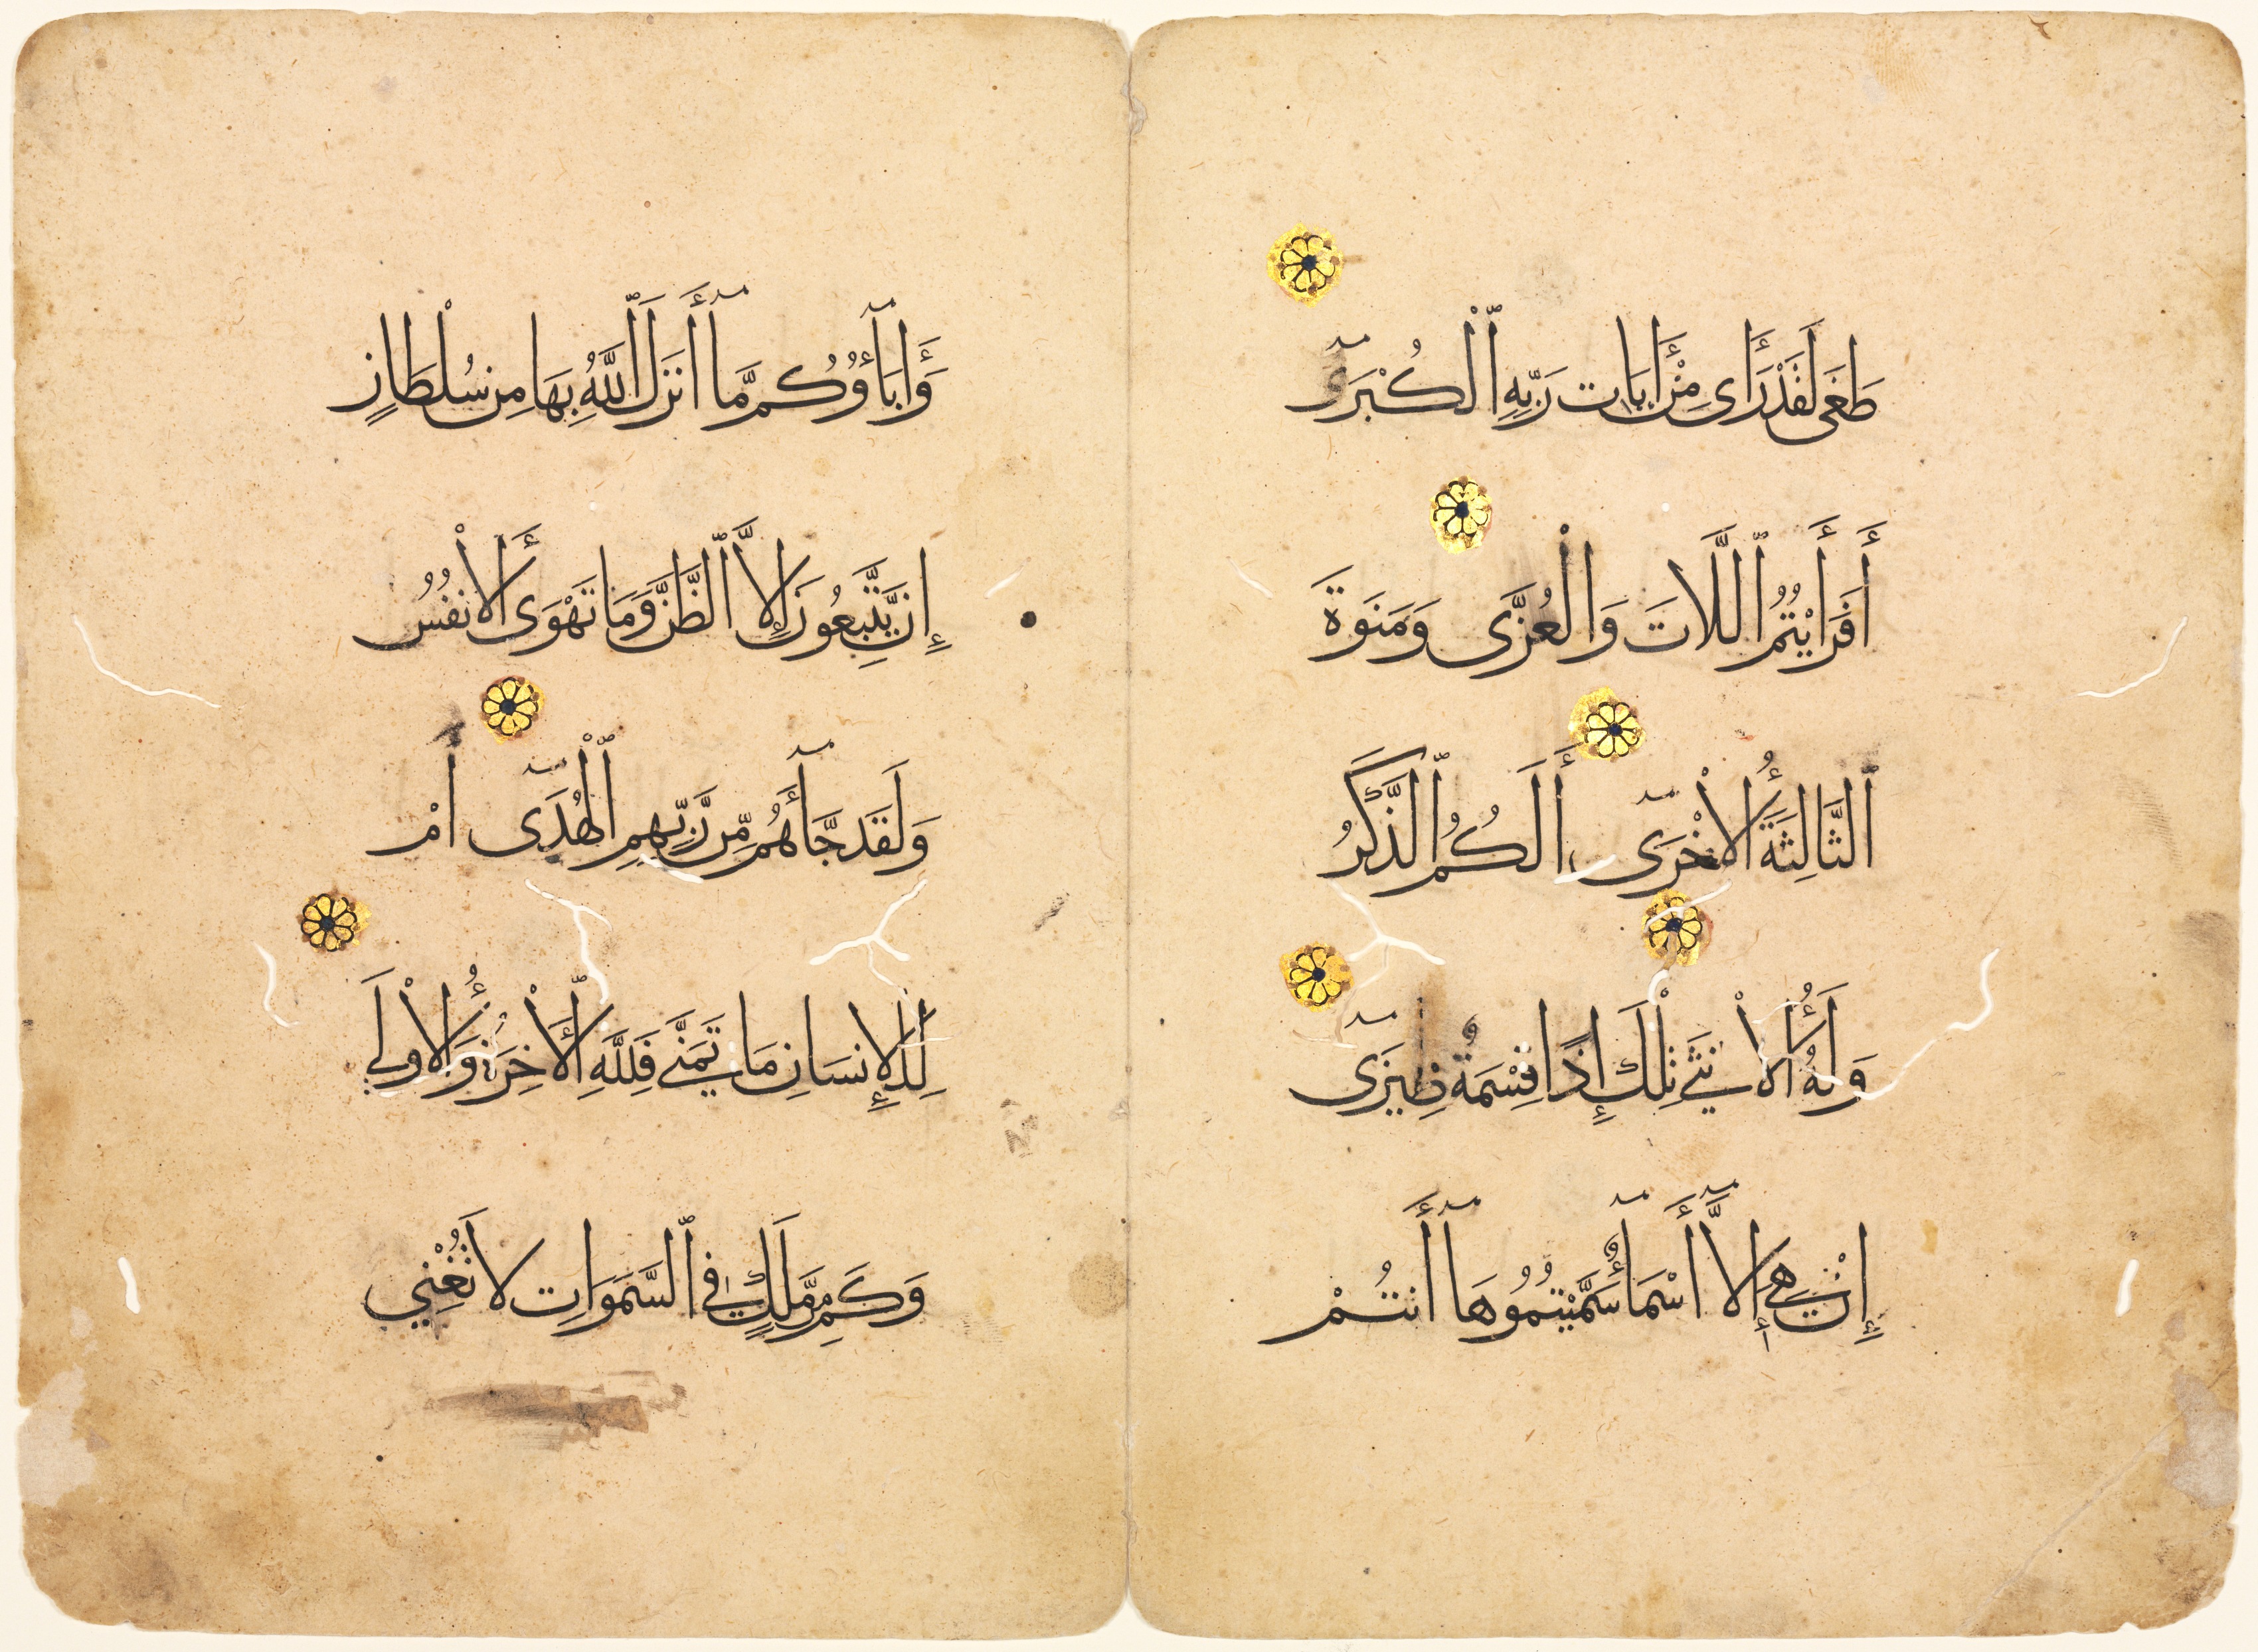 طَغَى لَقَدْ رَأَى مِنْ أَيَات رَبِّهِ ٱلْكُبْرَىٓ
أَفَرَأَيْتُمُ ٱللَّاتَ وَالْعُزَّى وَمَنَوةَ
ٱلثَّالِثَةَ ٱلْأُخْرَىٓ أَلَكُمُ ٱلذَّكَرُ
وَلَهُ ٱلْأُنثَى تِلْكَ إِذًا قِسْمَةٌ ضِيزَىٓ
إِنْ هِيَ إِلَّآ أَسْمَآءٌ سَمَّيْتُمُوهَآ أَنتُمْ
وَأَابَآؤُكُم مَّآ أَنزَلَ ٱللَّهُ بِهَا مِن سُلْطَانٍ
إِن يَتَّبِعُونَ إِلَّا ٱلظَّنَّ وَمَا تَهْوَى ٱلْأَنفُسُ
وَلَقَد جَّآءَهُم مِّن رَّبِّهِمِ ٱلْهُدَىٓ أَمْ
لِلْإِنسَانِ مَا تَمَنَّى فَلِلَّهِ ٱلْأَخِرَةُ وَالْأُولَى
وَكَم مِّن مَّلَكٍ فِي ٱلسَّمَوَاتِ لَا تُغْنِي